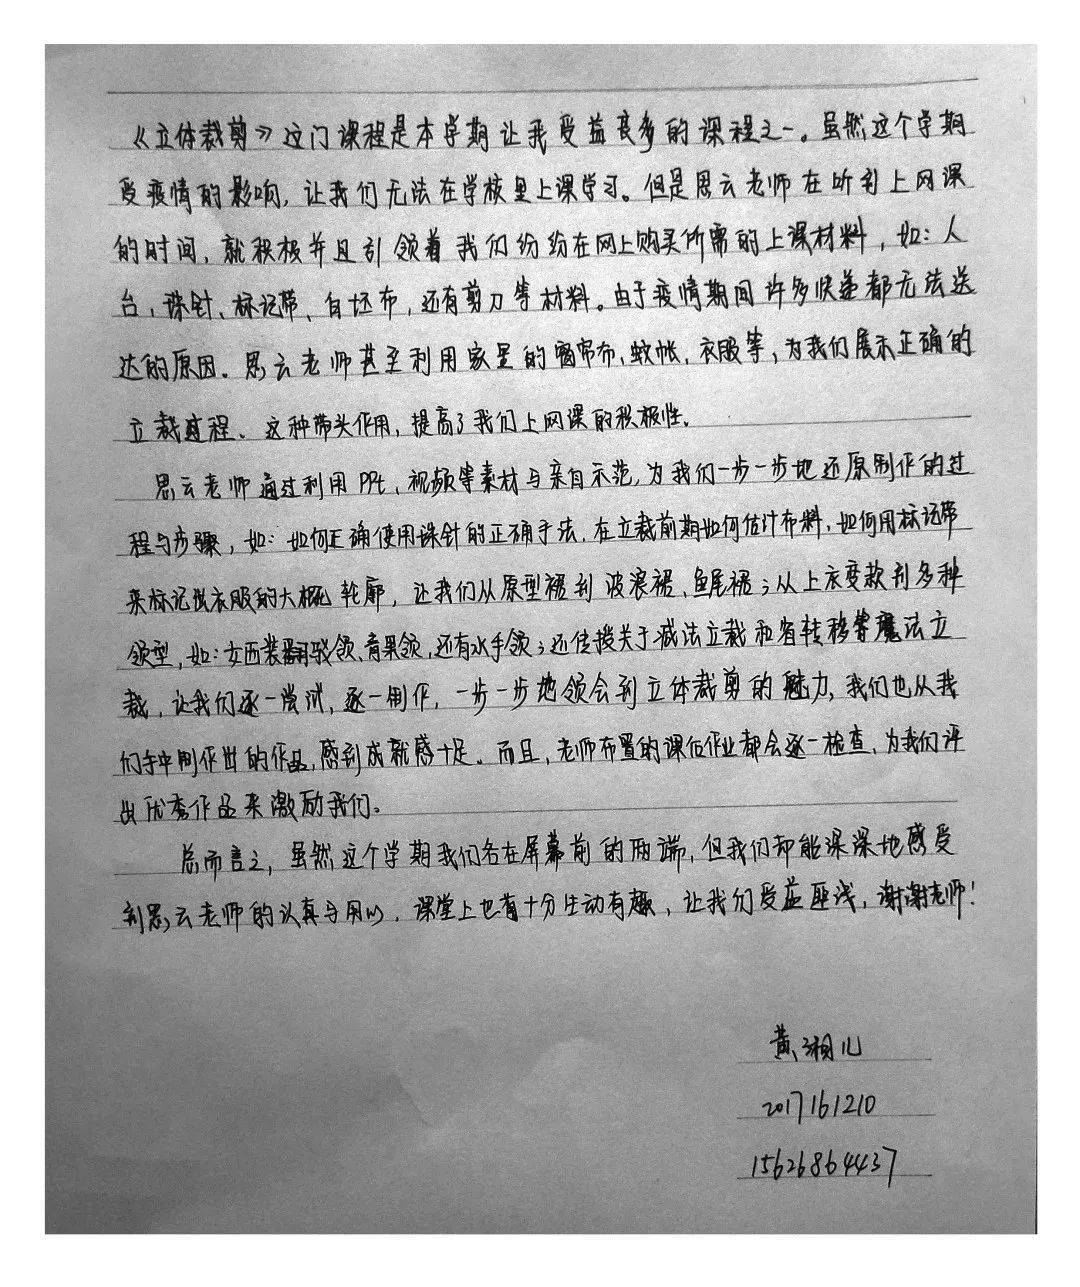 《立体裁剪》这门课程是本学期让我受益良多的课程之一。虽然这个学期
受疫情的影响，让我们无法在学校里上课学习。但是思云老师在听到上网课
的时间，就积极并且引领着我们纷纷在网上购买所需的上课材料，如：人
台，珠针、标记带、白坯布，还有剪刀等材料。由于疫情期间许多快递都无法送
达的原因。思云老师甚至利用家里的窗帘布，蚊帐，衣服等，为我们展示正确的
立裁过程、这种带头作用，提高了我们上网课的积极性。
思云老师通过利用PPt、视频等素材与亲自示范，为我们一步一步地还原制作的过
程与步骤，如：如何正确使用珠针的正确手法，在立裁前期如何估计布料，如何用标记带
来标记做衣服的大概轮廓，让我们从原型裙到波浪裙、鱼尾裙；从上衣变款到多种
领型，如：女西装翻驳领、青果领，还有水手领；还传授关于减法立裁和省转移等魔法立
裁，让我们逐一尝试，逐一制作，一步一步地领会到立体裁剪的魅力，我们也从我
们手中制作出的作品，感到成就感十足。而且，老师布置的课后作业都会逐一检查，为我们评
出优秀作品来激励我们。
总而言之，虽然这个学期我们各在屏幕前的两端，但我们却能深深地感受
到思云老师的认真与用心，课堂上也有十分生动有趣，让我们受益匪浅，谢谢老师！
黄湘儿
2017161210
15626864437